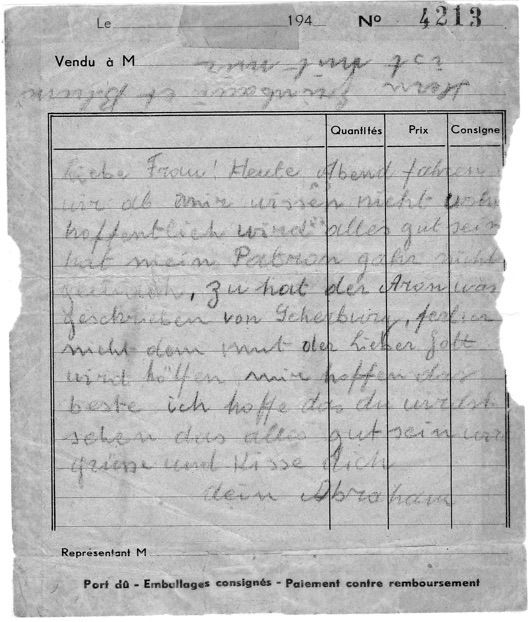 Le 194 Nº 4213
Vendu à M
ist mit mir
Herr Grinbaum et Blum
Quantités Prix Consigne
Liebe Frau! Heute Abend fahren
wir ab mir wissen nicht
hoffentlich wird alles gut sein
hat mein Patron gahr nicht
, zu hat der Aron was
geschrieben von Scherburg, ferlier
nicht dem mut der Lieber Gott
wird hölfen mir hoffen das
beste ich hoffe das du wirdst
sehen das alles gut sein
grüsse und Kisse dich
dein Abraham
Représentant M
Port dû - Emballages consignés - Paiement contre remboursement